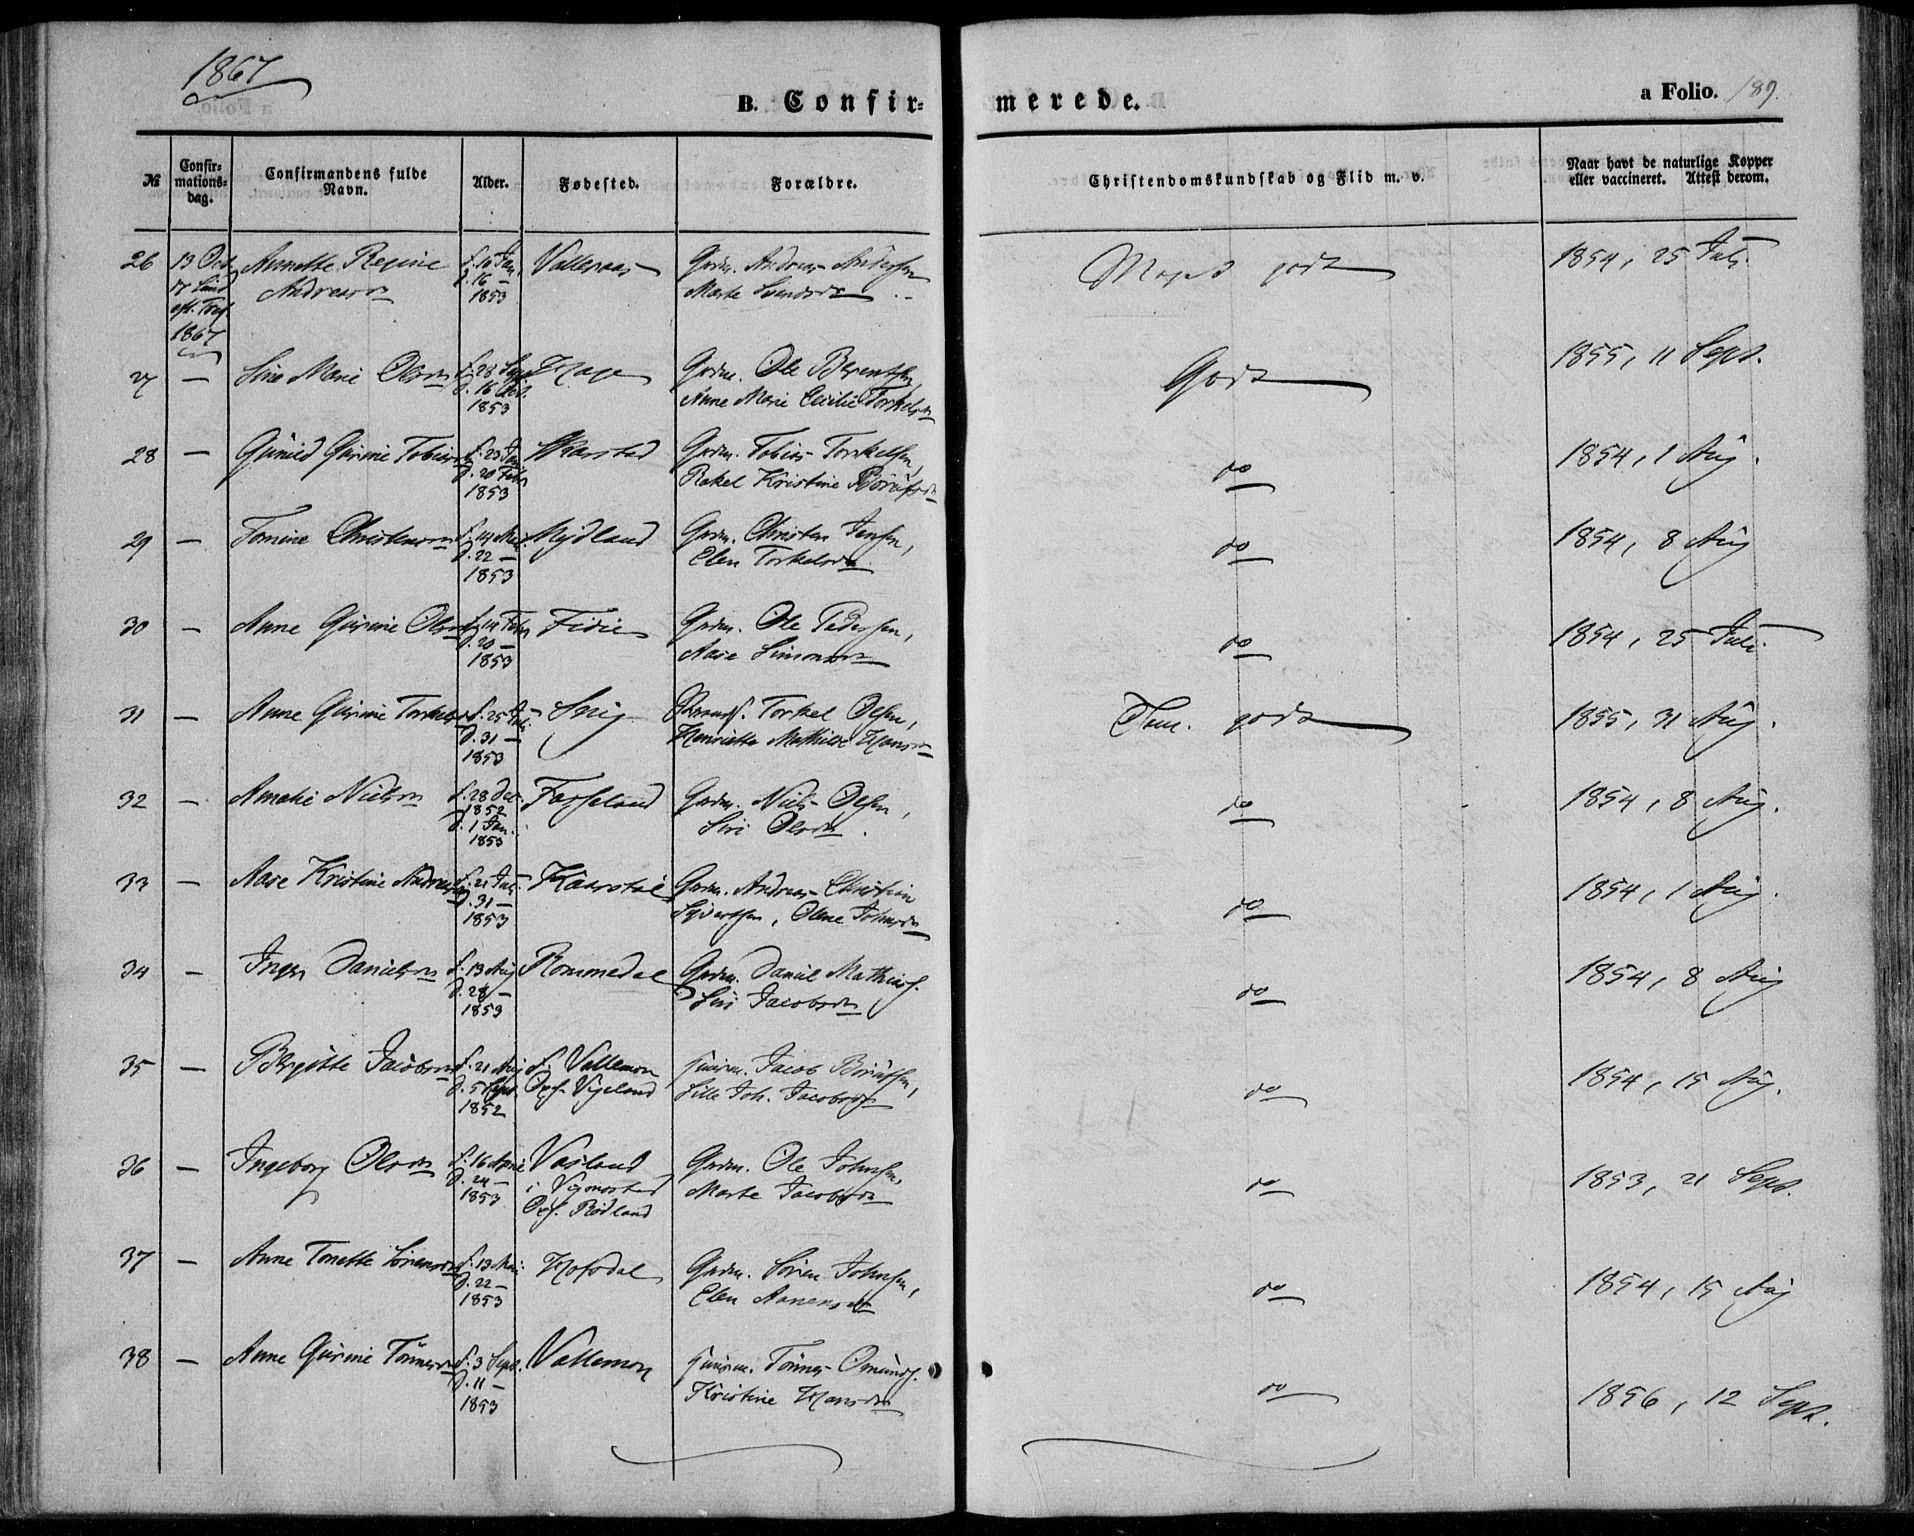 1867
B. Confir=
merede.
a Folio. 189.
№
Confir=
mations=
dag.
Confirmandens fulde
Navn.
Alder.
Fødested.
Forældre.
Christendomskundskab og Flid m. v.
Naar havt de naturlige Kopper
eller vaccineret. Attest derom.
26 13 Oct. Annette Regine f. 10 Jan. Gdm. Andreas Andersen Meget godt 1854, 25 Juli
Andreasd. d. 16 — Marte
1853
1867
27 — Marie Olsd. f. 28 Sept. Hage Gdm. Ole Berentsen, Godt 1855, 11 Sept.
d. 16 Oct. Anne Marie Cecilie Torkelsd.
1853
28 — Gunild Gurine Tobiasd. f. 23 Jan. Skarstad Gdm. Tobias Torkelsen, do 1854, 1 Aug.
d. 20 Febr. Rakel Kristine
1853
29 — Tomine Christensd. f. 14 Mydland Gdm. Christen Jensen, do 1854, 8 Aug
d. 22 — Elen Torkelsd.
1853
30 — Anne Gurine Olsd. f. 14 Febr. Fidie Gdm. Ole Pedersen, do 1854, 25 Juli
d. 20 — Aase Simonsd.
1853
31 — Anne Gurine Torkelsd. f. 25 Juli Torkel Olsen, Tem. godt 1855, 31 Aug.
d. 31 — Henriette Mathilde Hansd.
1853
32 — Amalie Nielsd. f. 28 Dec. Fasseland Gdm. Niels Olsen, do 1854, 8 Aug.
1852 Siri Olsd.
d. 1 Jan.
1853
33 — Aase Kristine Andreasd. f. 21 Juli Gdm. Andreas Christian do 1854, 1 Aug.
d. 31 — Syvertsen, Olene Johnsd.
1853
34 — Inger Danielsd. f. 13 Aug Rommedal Gdm. Daniel Mathias. do 1854, 8 Aug
d. 28 — Siri Jacobsd.
1853
35 — Bergitte Jacobsd. f. 21 Aug f. Vallemon Jacob do 1854, 15 Aug.
d. 5 Sept. Opf. Vigeland Sille Joh. Jacobsd.
1852
36 — Ingeborg Olsd. f. 16 April Vasland Gdm. Ole Johnsen, do 1853, 21 Sept.
d. 24 — i Vigmostad Marte Jacobsd.
1853 Opf. Rødland
37 — Anne Tonette Sørensd. f. 13 Mai Hofsdal Gdm. Søren Johnsen, do 1854, 15 Aug
d. 22 — Elen Aanensd.
1853
38 — Anne Gurine Tønnesd. f. 3 Sept. Vallemon Tønnes Omunds. do 1856, 12 Sept.
d. 11 — Kristine Hansd.
1853